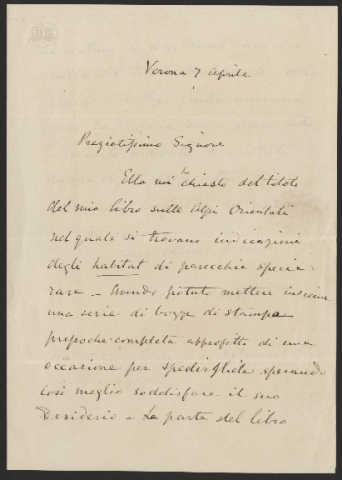 Verona 7 Aprile
Pregiatissimo Signore
Ella mi ha chiesto del titolo
del mio libro sulle Alpi Orientali
nel quale si trovano indicazione
degli habitat di parecchie specie
rare – Avendo potuto mettere insieme
una serie di bozze di stampa
pressoche completa approfitto di una
occasione per spedirgliele sperando
così meglio soddisfare il suo
desiderio – La parte del libro